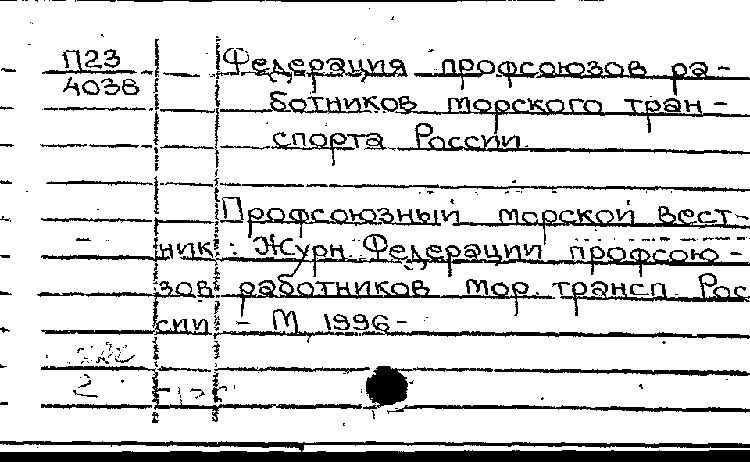 П23
4038
Федерация профсоюзов ра-
ботников морского тран-
спорта России.
Профсоюзный морской вест-
ник: Журн. Федерации профсою-
зов работников мор. трансп. Рос
сии - М, 1996-
2